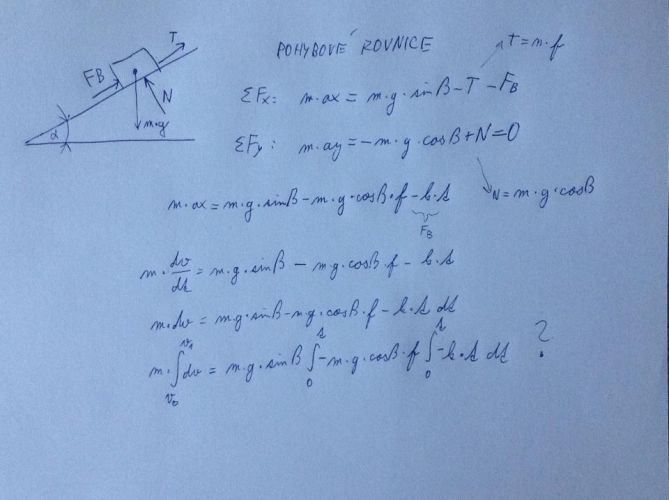 POHYBOVÉ ROVNICE
T = N·f
T
FB
N
m·g
α
ΣFx: m·ax = m·g·sinβ - T - FB
ΣFy: m·ay = -m·g·cosβ + N = 0
N = m·g·cosβ
m·ax = m·g·sinβ - m·g·cosβ·f - k·t
FB
m·dv/dt = m·g·sinβ - m·g·cosβ·f - k·t
m·dv = m·g·sinβ - m·g·cosβ·f - k·t dt
m·∫_{v0}^{v1} dv = m·g·sinβ ∫_{0}^{t} - m·g·cosβ·f ∫_{0}^{t} - k·t dt ?